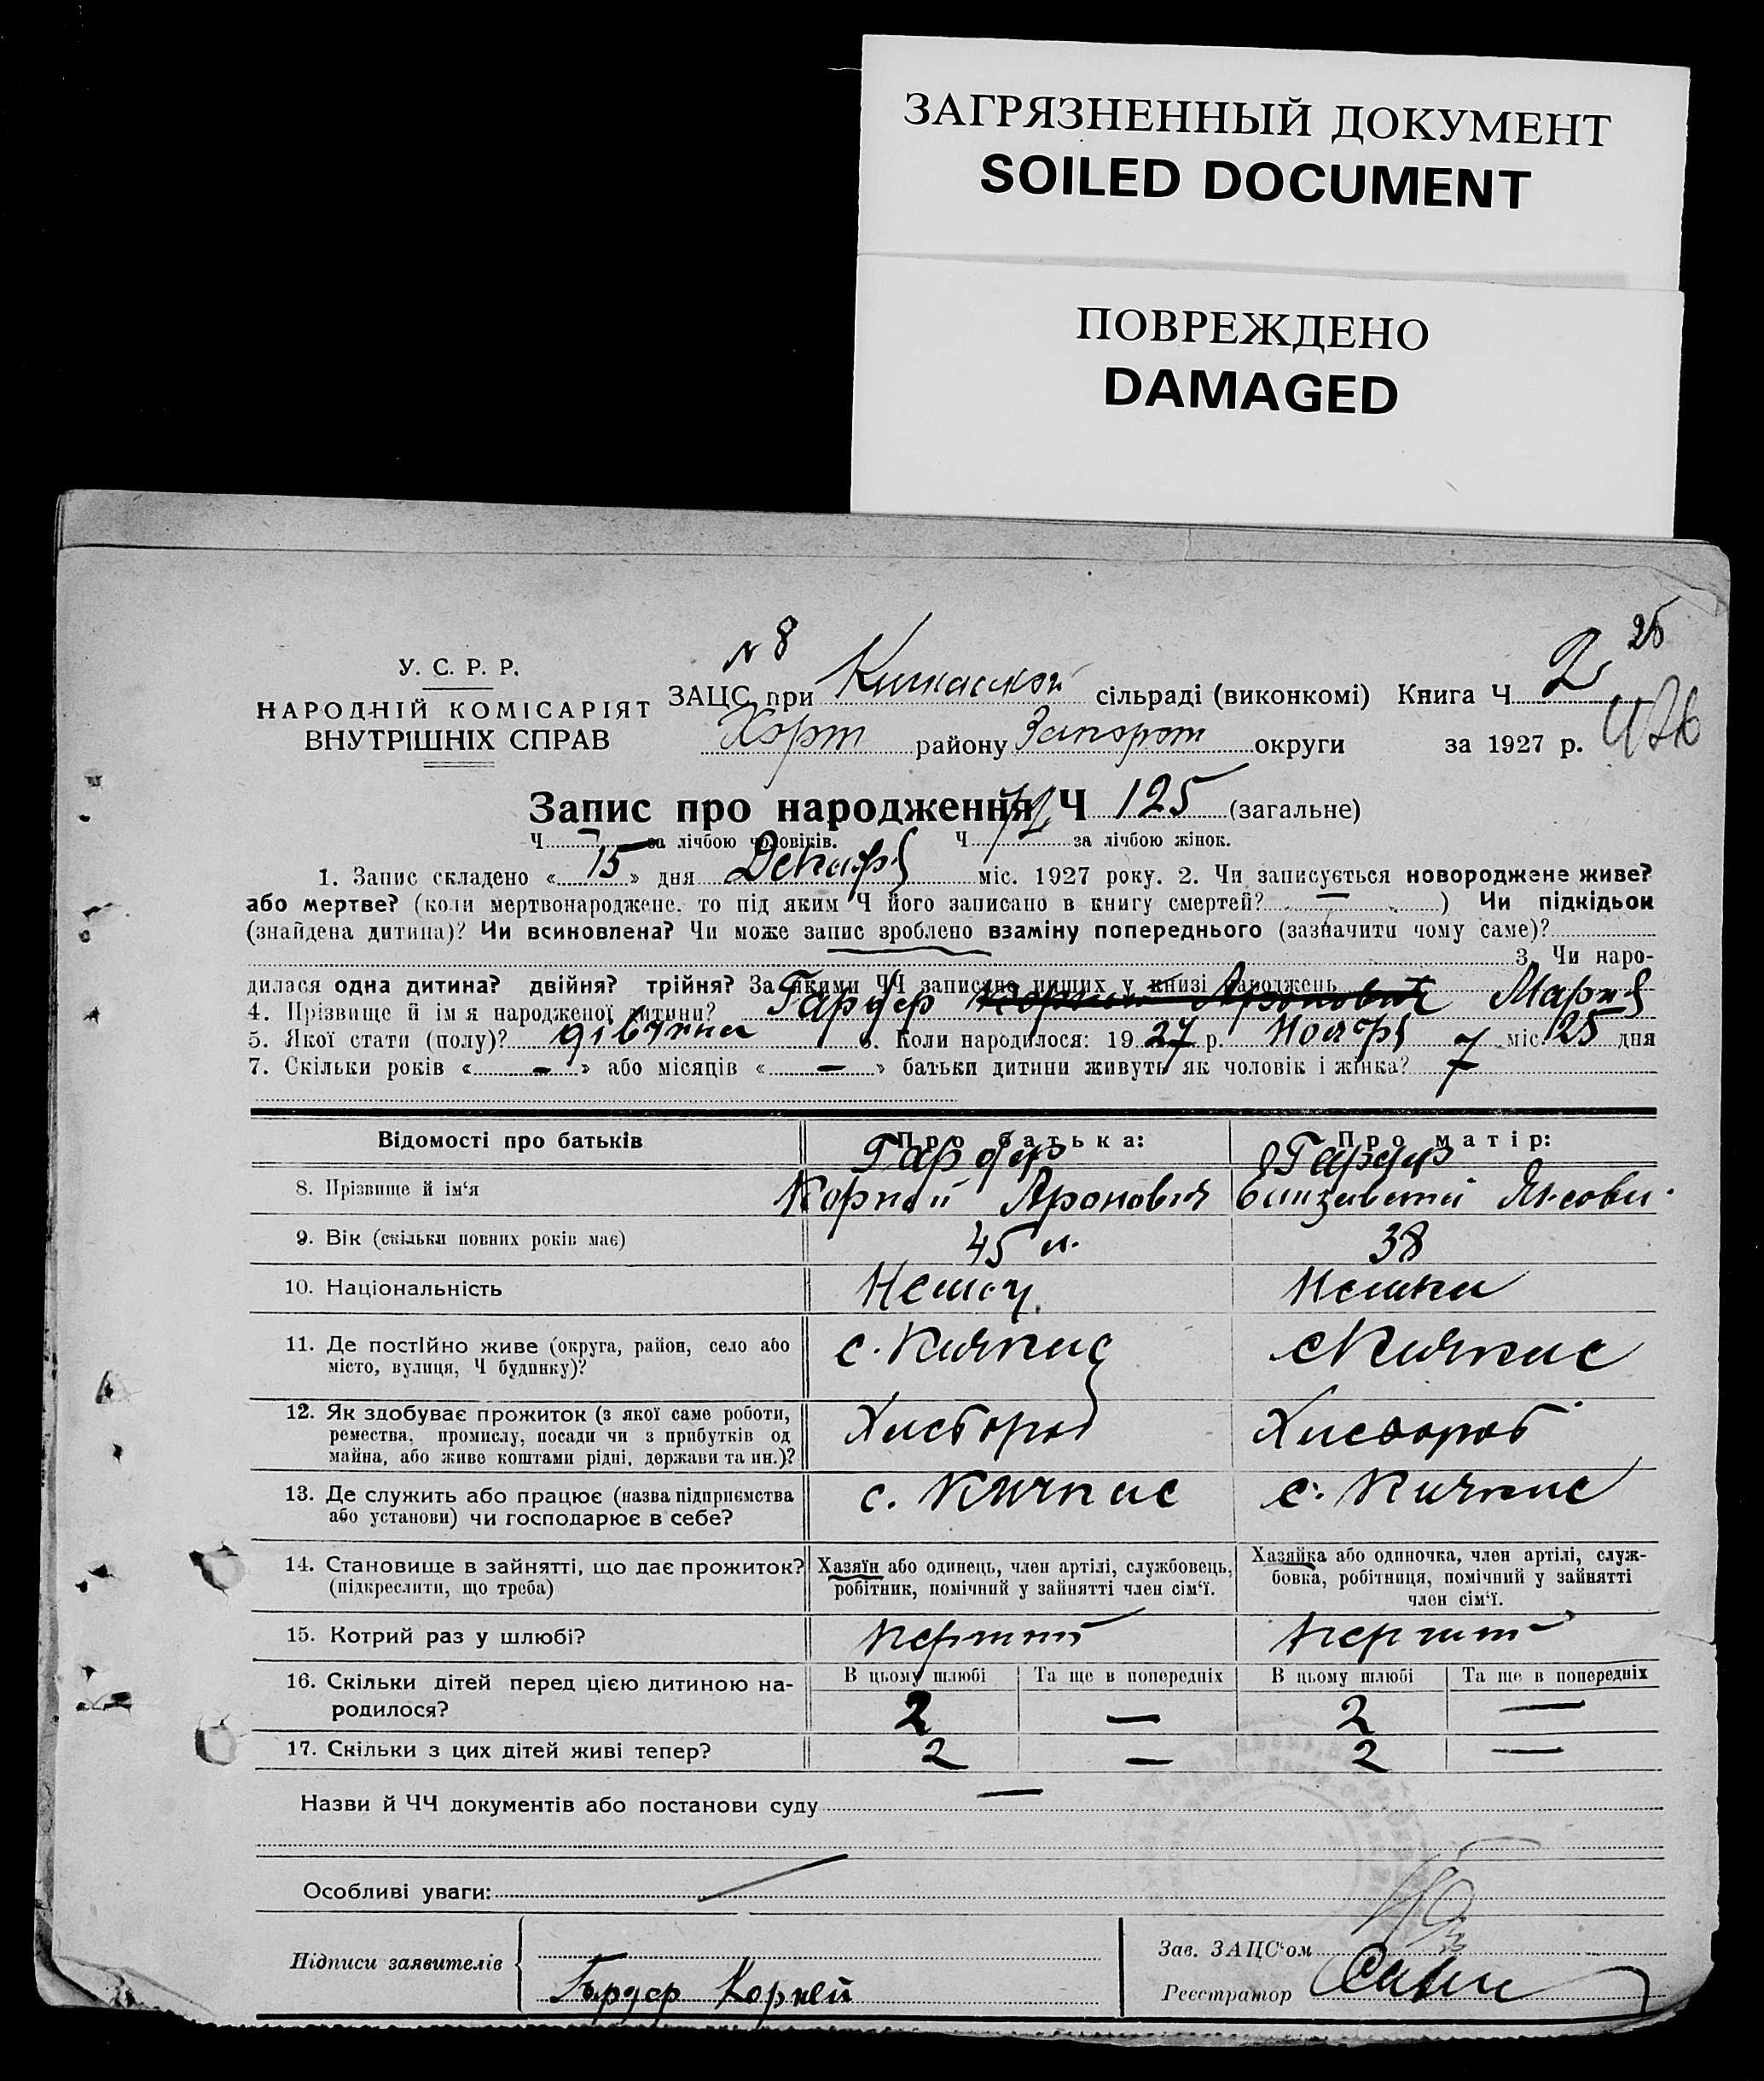 ЗАГРЯЗНЕННЫЙ ДОКУМЕНТ
SOILED DOCUMENT
ПОВРЕЖДЕНО
DAMAGED
25
N 8
У. С. Р. Р.
НАРОДНІЙ КОМІСАРІЯТ
ВНУТРІШНІХ СПРАВ
ЗАЦС при Кичкаской сільраді (виконкомі) Книга Ч. 2
Хорт району Запорот округи за 1927 р.
Запис про народження Ч 125 (загальне)
Ч за лічбою чоловіків. Ч за лічбою жінок.
1. Запис складено « 15 » дня Декабр міс. 1927 року. 2. Чи записується новороджене живе?
або мертве? (коли мертвонароджене, то під яким Ч його записано в книгу смертей? — ) Чи підкідьок
(знайдена дитина)? Чи всиновлена? Чи може запис зроблено взаміну попереднього (зазначити чому саме)?
3. Чи наро-
дилася одна дитина? двійня? трійня? За якими ЧЧ записано инших у книзі народжень
4. Прізвище й імя народженої дитини? Гардер Корней Аронович Мария
5. Якої стати (полу)? дівчина 6. Коли народилося: 1927 р. Ноябр міс. 25 дня
7. Скільки років « — » або місяців « — » батьки дитини живуть як чоловік і жінка? 7
Відомості про батьків Про батька: Про матір:
Гардер Гардер
8. Прізвище й ім‘я Корней Аронович Елизавета
9. Вік (скільки повних років має) 45 л. 38
10. Національність Немец Немка
11. Де постійно живе (округа, район, село або
місто, вулиця, Ч будинку)? с. Кичкас с Кичкас
12. Як здобуває прожиток (з якої саме роботи,
ремества, промислу, посади чи з прибутків од
майна, або живе коштами рідні, держави та ин.)? Хлебороб Хлебороб
13. Де служить або працює (назва підприємства
або установи) чи господарює в себе? с. Кичкас с. Кичкас
14. Становище в зайнятті, що дає прожиток?
(підкреслити, що треба)
Хазяїн або одинець, член артілі, службовець,
робітник, помічний у зайнятті член сім‘ї.
Хазяйка або одиночка, член артілі, служ-
бовка, робітниця, помічний у зайнятті
член сім‘ї.
15. Котрий раз у шлюбі? первый первый
16. Скільки дітей перед цією дитиною на-
родилося?
В цьому шлюбі Та ще в попередніх В цьому шлюбі Та ще в попередніх
2 — 2 —
17. Скільки з цих дітей живі тепер? 2 — 2 —
Назви й ЧЧ документів або постанови суду —
Особливі уваги:
Підписи заявителів
Гардер Корней
Зав. ЗАЦС‘ом
Реєстратор